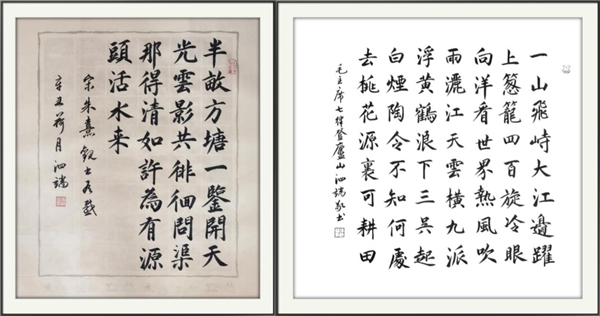 半畝方塘一鑒開天
光雲影共徘徊問渠
那得清如許為有源
頭活水来
宋朱熹觀书有感
辛丑荷月泗瑞
一山飛峙大江邊躍
上葱籠四百旋冷眼
向洋看世界熱風吹
雨灑江天雲橫九派
浮黄鶴浪下三吳起
白煙陶令不知何處
去桃花源裏可耕田
毛主席七律登廬山泗瑞敬书